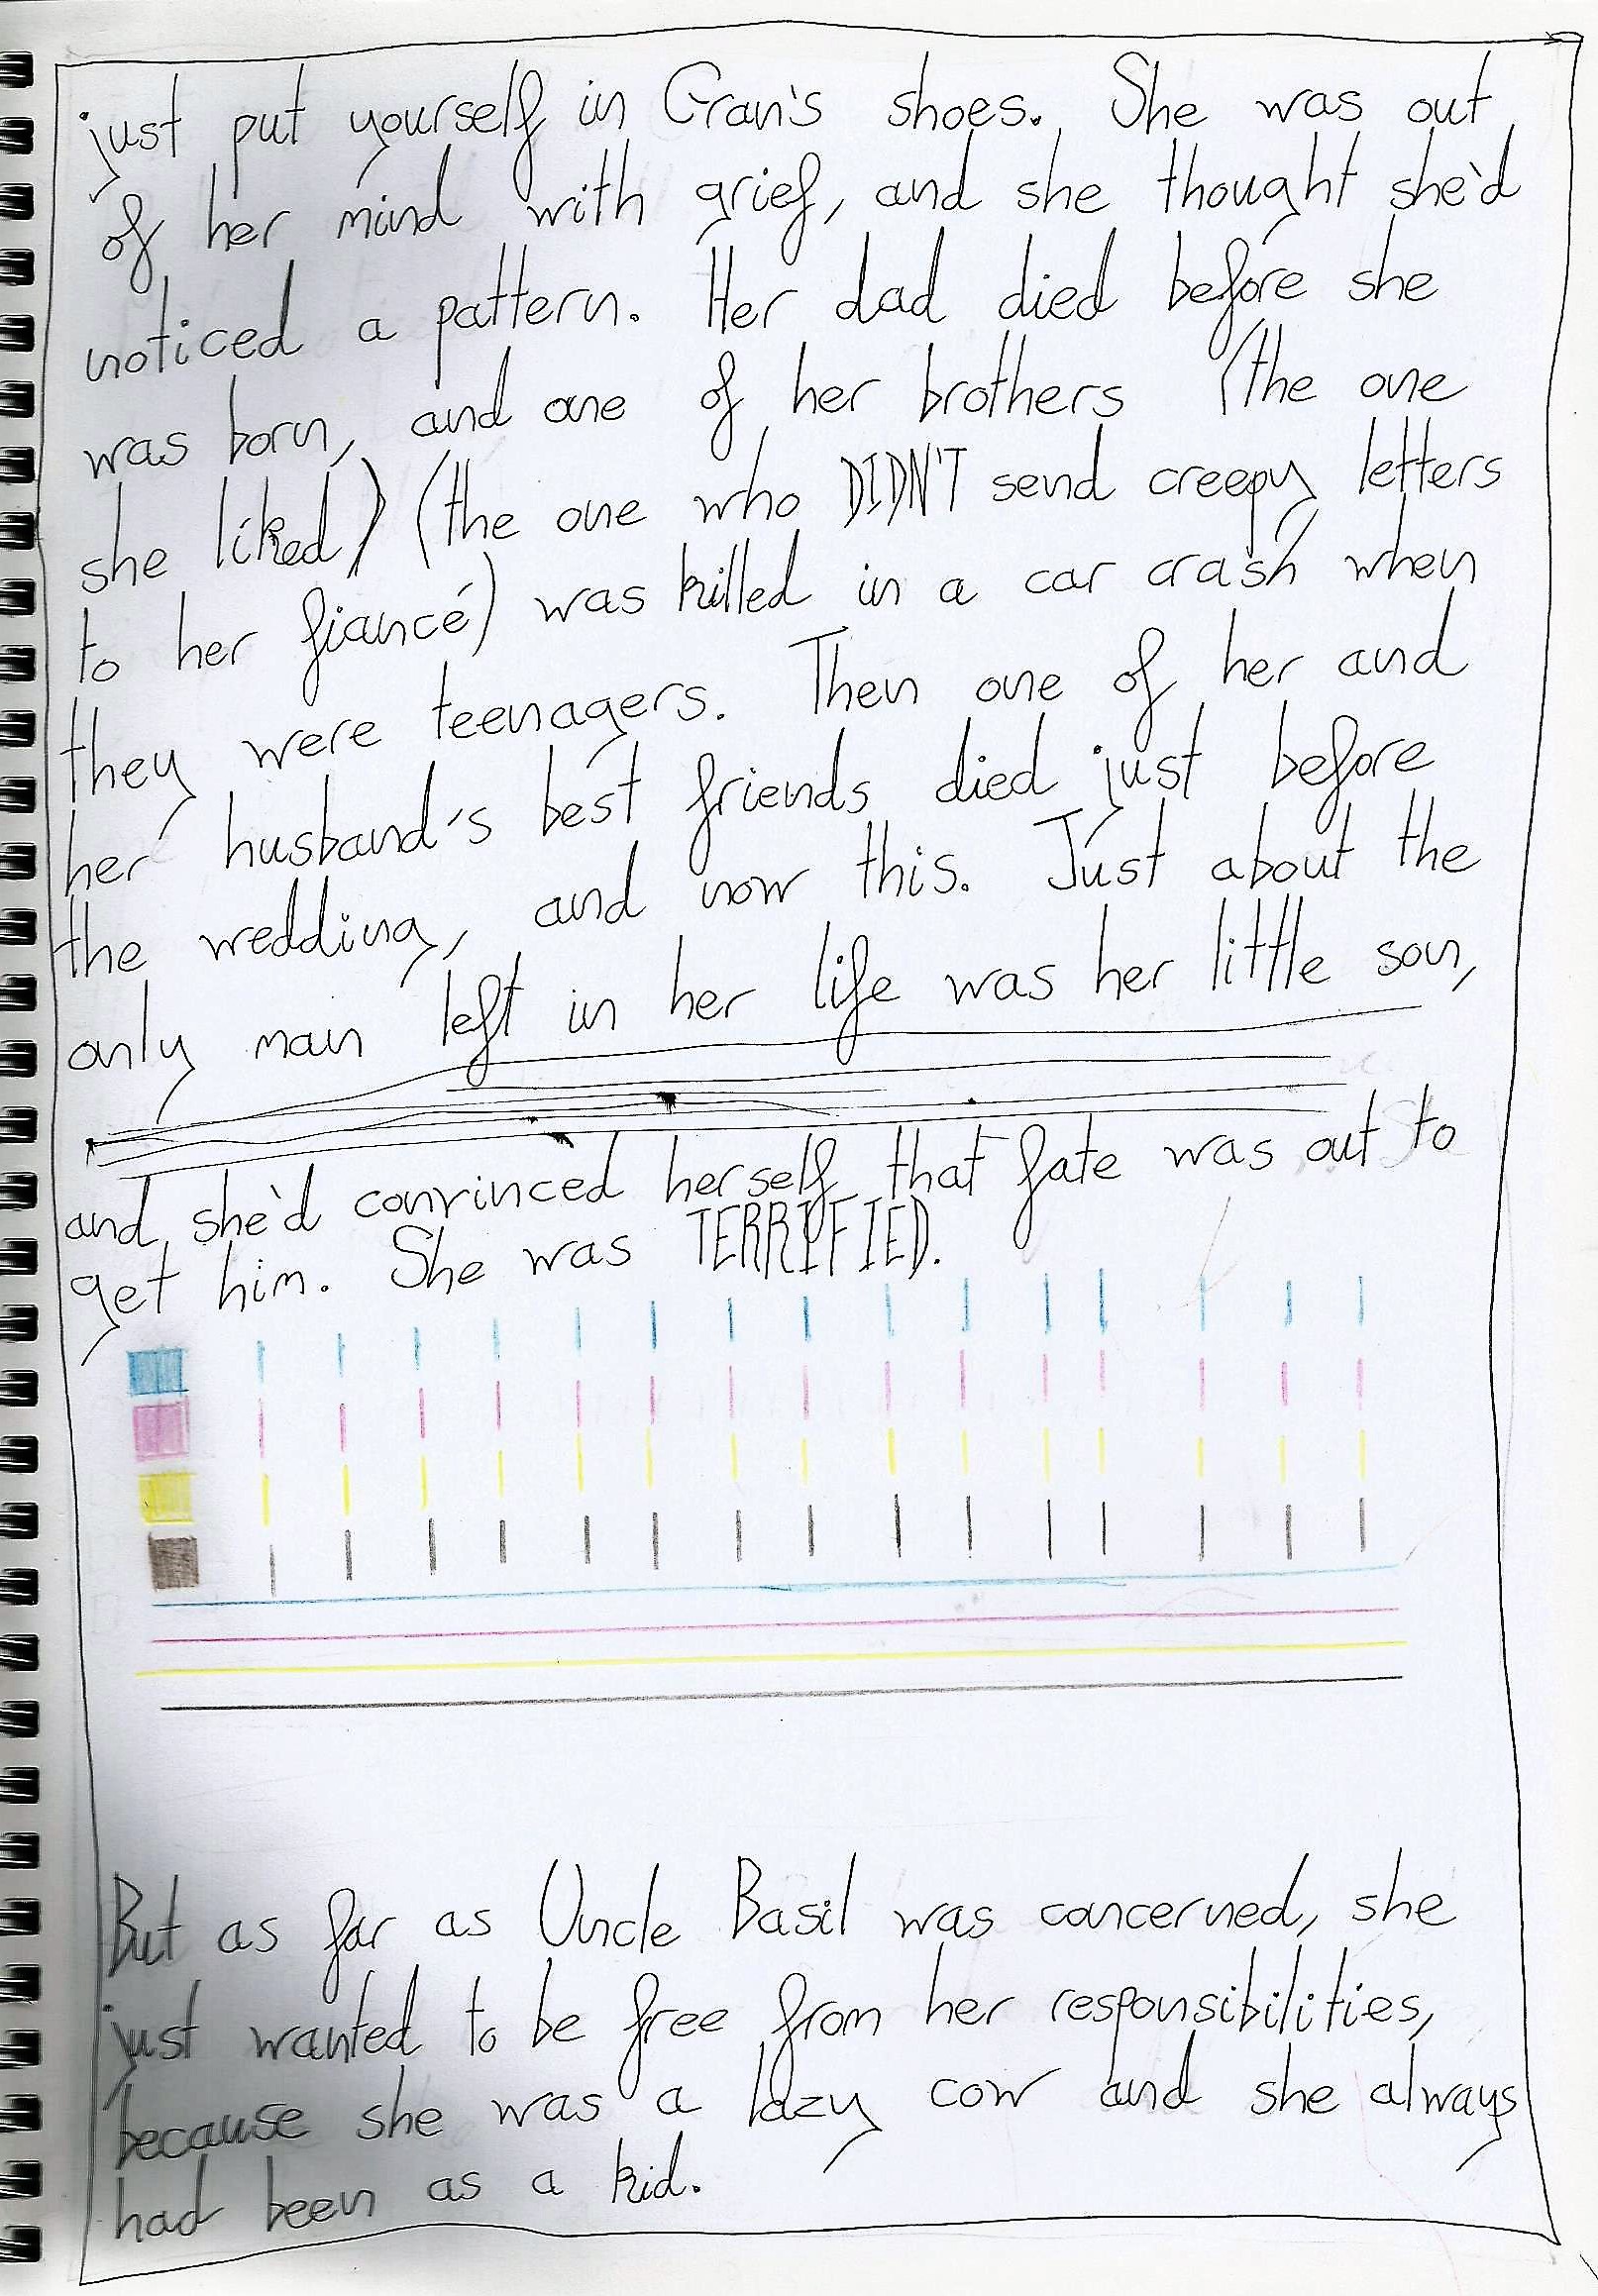 just put yourself in Gran's shoes. She was out
of her mind with grief, and she thought she'd
noticed a pattern. Her dad died before she
was born, and one of her brothers (the one
she liked) (the one who DIDN'T send creepy letters
to her fiancé) was killed in a car crash when
they were teenagers. Then one of her and
her husband's best friends died just before
the wedding, and now this. Just about the
only man left in her life was her little son,
and she'd convinced herself that fate was out to
get him. She was TERRIFIED.
But as far as Uncle Basil was concerned, she
just wanted to be free from her responsibilities,
because she was a lazy cow and she always
had been as a kid.